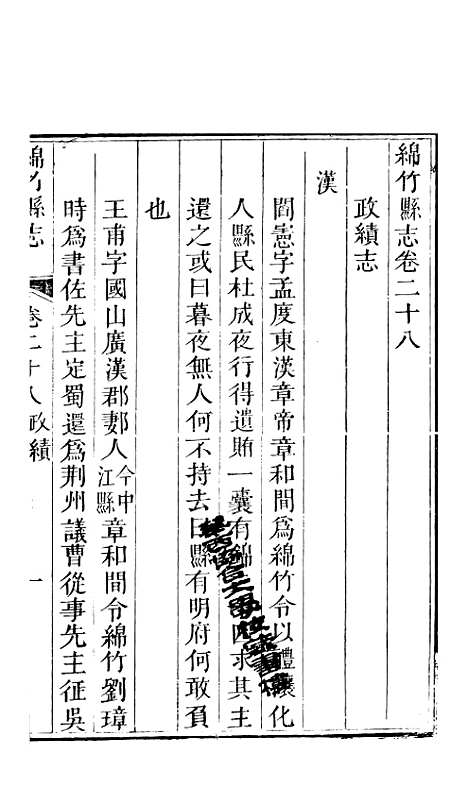 綿竹縣志卷二十八
政績志
漢
閻憲字孟度東漢章帝章和間爲綿竹令以禮讓化
人縣民杜成夜行得遺賄一囊有錦四求其主
還之或曰暮夜無人何不持去曰縣有明府何敢負
也
王甫字國山廣漢郡郪人今中江縣章和間令綿竹劉璋
時爲書佐先主定蜀還爲荆州議曹從事先主征吳
綿竹縣志 卷二十八政績 一